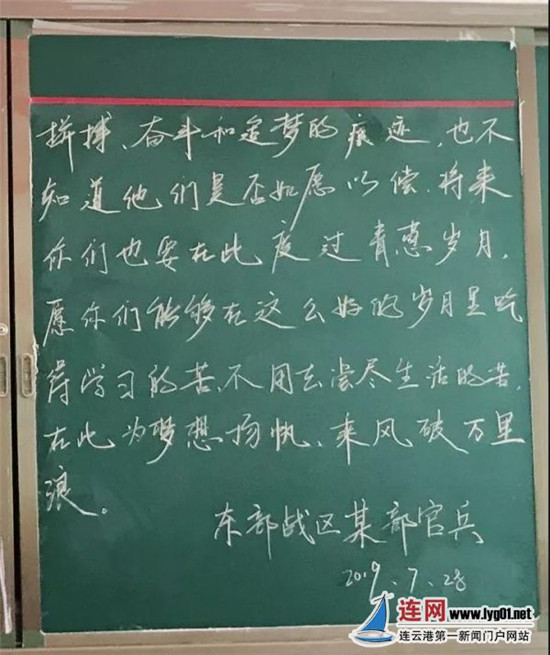 拼搏、奋斗和追梦的痕迹，也不
知道他们是否如愿以偿.将来
你们也要在此度过青葱岁月，
愿你们能够在这么好的岁月里吃
得学习的苦，不用去尝尽生活的苦，
在此为梦想扬帆、乘风破万里
浪。
东部战区某部官兵
2019.7.28
连网www.lyg01.net
连云港第一新闻门户网站